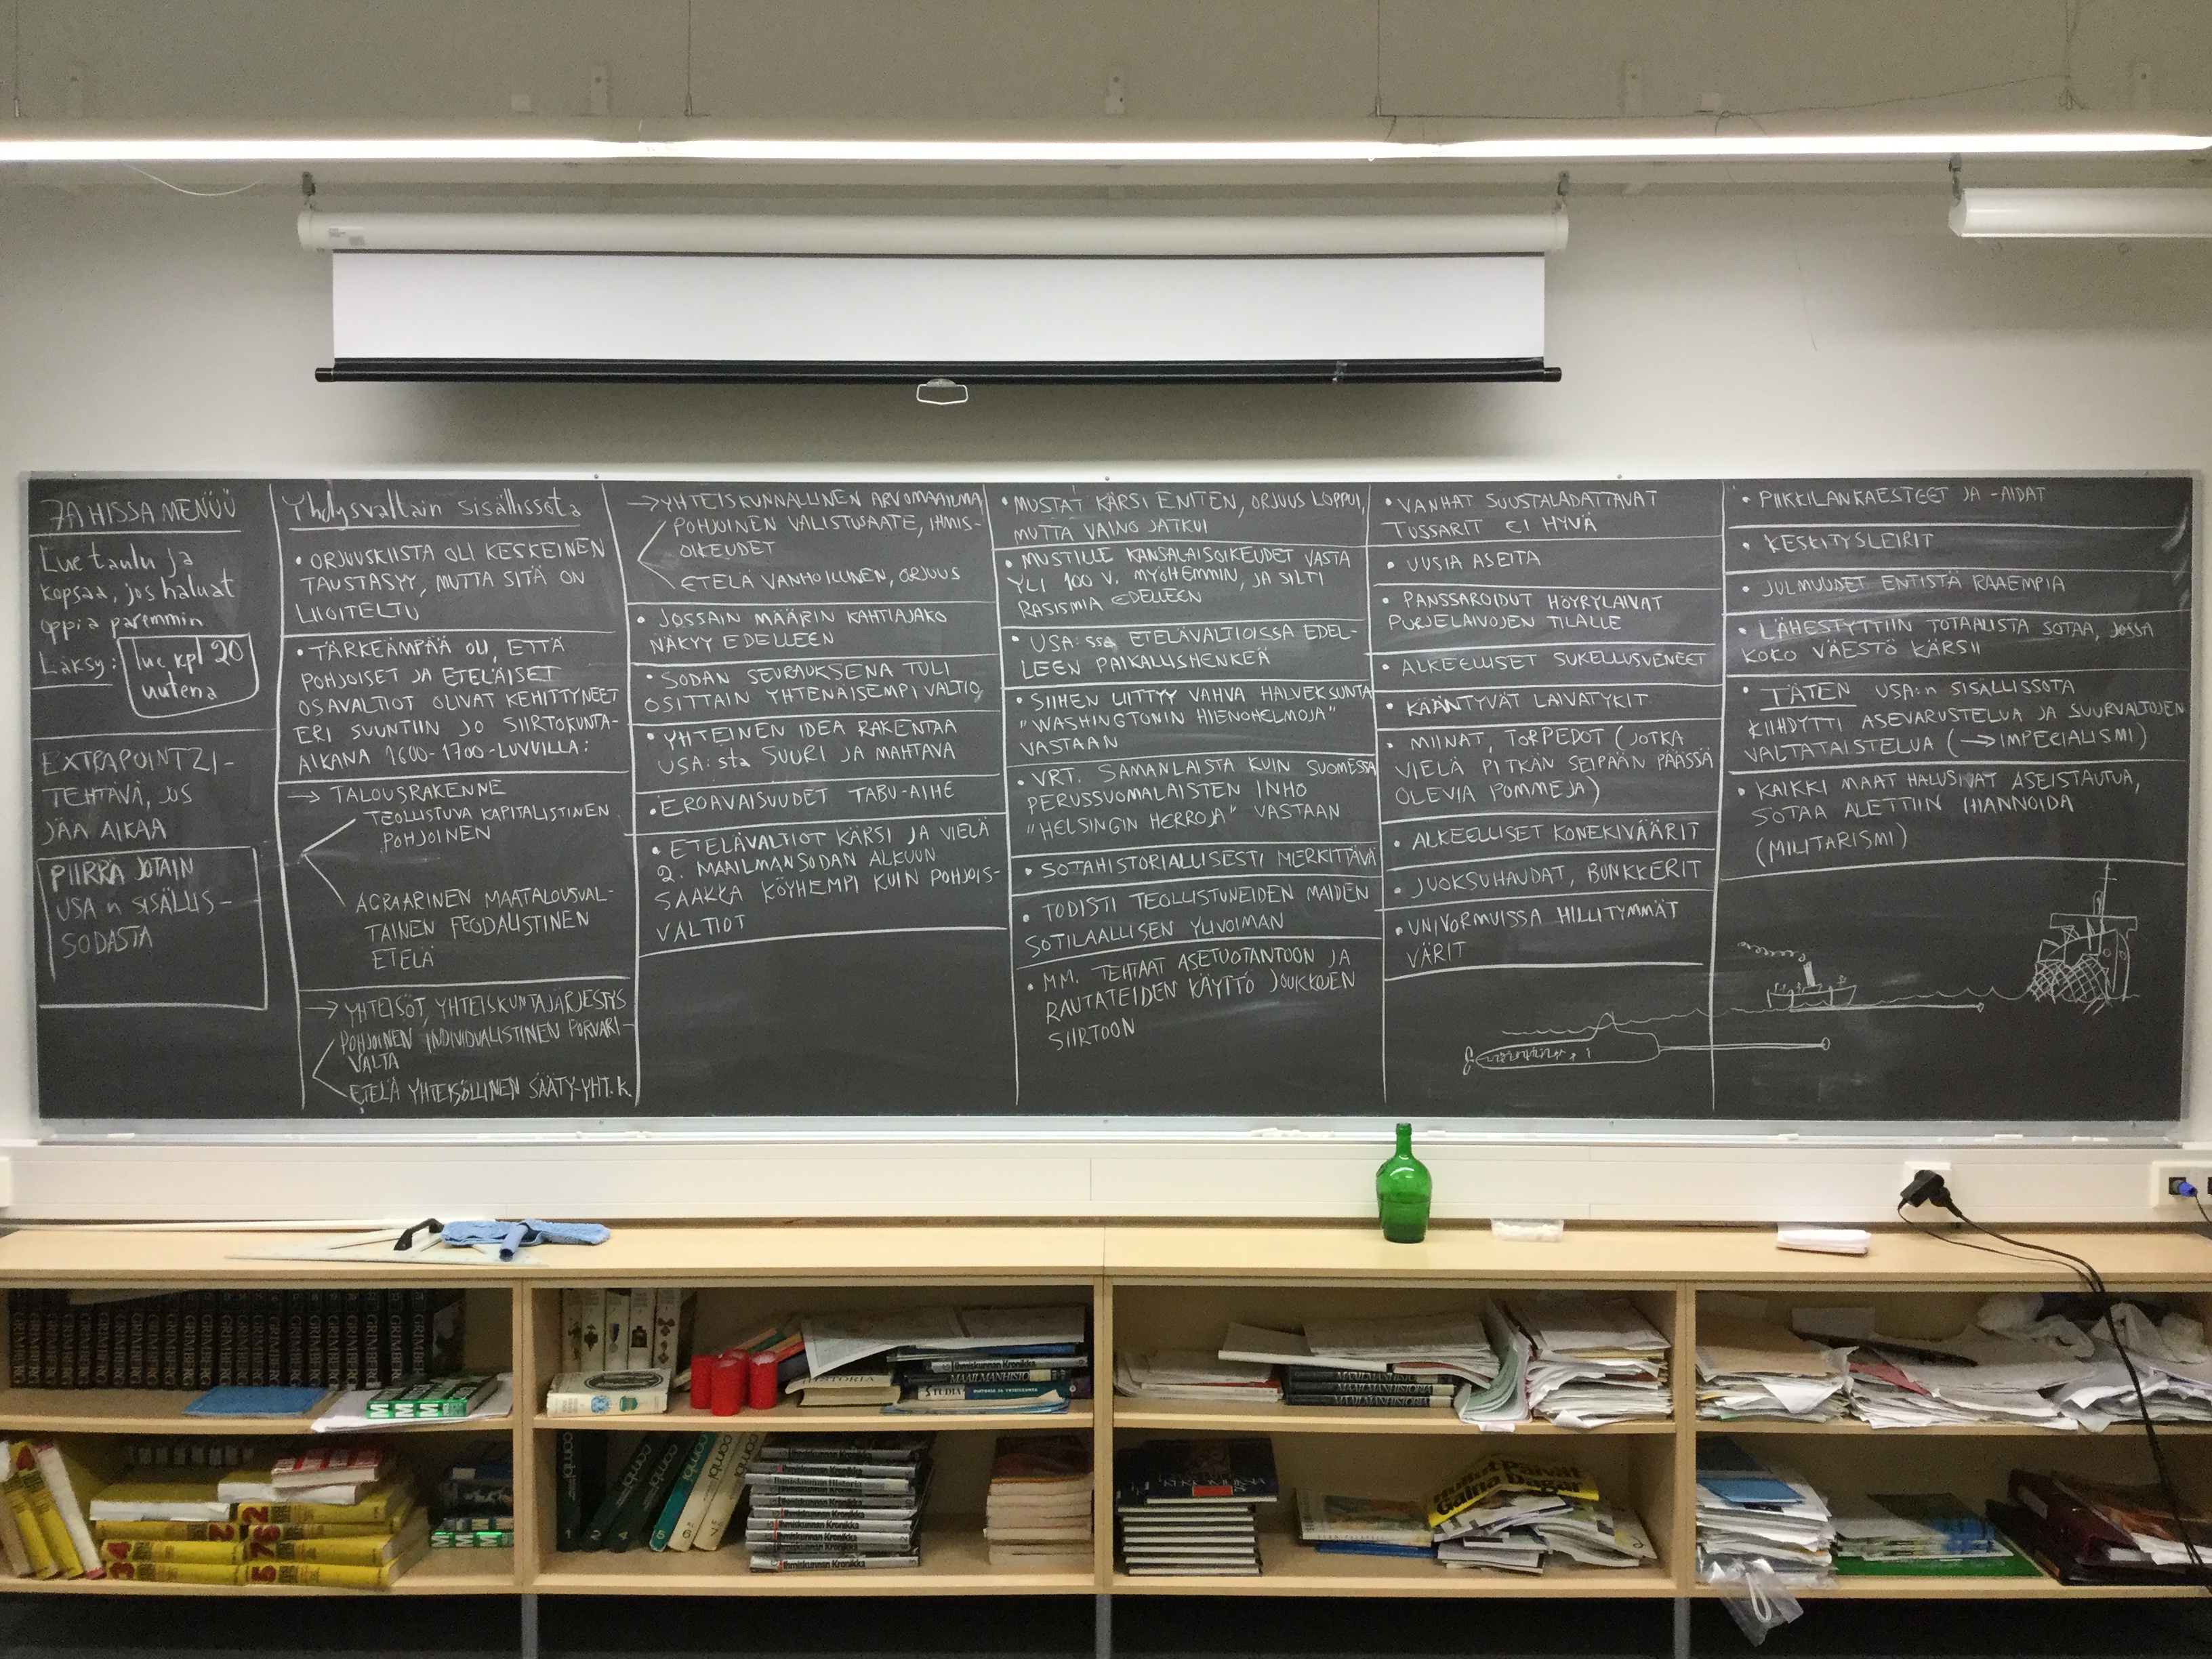 7A HISSA MENÜÜ
Lue taulu ja
kopsaa, jos haluat
oppia paremmin
Läksy: lue kpl 20
uutena
EXTRAPOINTZI-
TEHTÄVÄ, JOS
JÄÄ AIKAA
PIIRRÄ JOTAIN
USA:n SISÄLLIS-
SODASTA
Yhdysvaltain sisällissota
• ORJUUSKIISTA OLI KESKEINEN
TAUSTASYY, MUTTA SITÄ ON
LIIOITELTU
• TÄRKEÄMPÄÄ OLI, ETTÄ
POHJOISET JA ETELÄISET
OSAVALTIOT OLIVAT KEHITTYNEET
ERI SUUNTIIN JO SIIRTOKUNTA-
AIKANA 1600-1700-LUVUILLA:
→ TALOUSRAKENNE
TEOLLISTUVA KAPITALISTINEN
POHJOINEN
AGRAARINEN MAATALOUSVAL-
TAINEN FEODALISTINEN
ETELÄ
→ YHTEISÖT, YHTEISKUNTAJÄRJESTYS
POHJOINEN INDIVIDUALISTINEN PORVARI-
VALTA
ETELÄ YHTEISÖLLINEN SÄÄTY-YHT.K.
→ YHTEISKUNNALLINEN ARVOMAAILMA
POHJOINEN VALISTUSAATE, IHMIS-
OIKEUDET
ETELÄ VANHOILLINEN, ORJUUS
• JOSSAIN MÄÄRIN KAHTIAJAKO
NÄKYY EDELLEEN
• SODAN SEURAUKSENA TULI
OSITTAIN YHTENÄISEMPI VALTIO
• YHTEINEN IDEA RAKENTAA
USA:sta SUURI JA MAHTAVA
• EROAVAISUUDET TABU-AIHE
• ETELÄVALTIOT KÄRSI JA VIELÄ
2. MAAILMANSODAN ALKUUN
SAAKKA KÖYHEMPI KUIN POHJOIS-
VALTIOT
• MUSTAT KÄRSI ENITEN, ORJUUS LOPPUI,
MUTTA VAINO JATKUI
• MUSTILLE KANSALAISOIKEUDET VASTA
YLI 100 V. MYÖHEMMIN, JA SILTI
RASISMIA EDELLEEN
• USA:ssa ETELÄVALTIOISSA EDEL-
LEEN PAIKALLISHENKEÄ
• SIIHEN LIITTYY VAHVA HALVEKSUNTA
"WASHINGTONIN HIENOHELMOJA"
VASTAAN
• VRT. SAMANLAISTA KUIN SUOMESSA
PERUSSUOMALAISTEN INHO
"HELSINGIN HERROJA" VASTAAN
• SOTAHISTORIALLISESTI MERKITTÄVÄ
• TODISTI TEOLLISTUNEIDEN MAIDEN
SOTILAALLISEN YLIVOIMAN
• MM. TEHTAAT ASETUOTANTOON JA
RAUTATEIDEN KÄYTTÖ JOUKKOJEN
SIIRTOON
• VANHAT SUUSTALADATTAVAT
TUSSARIT EI HYVÄ
• UUSIA ASEITA
• PANSSAROIDUT HÖYRYLAIVAT
PURJELAIVOJEN TILALLE
• ALKEELLISET SUKELLUSVENEET
• KÄÄNTYVÄT LAIVATYKIT
• MIINAT, TORPEDOT (JOTKA
VIELÄ PITKÄN SEIPÄÄN PÄÄSSÄ
OLEVIA POMMEJA)
• ALKEELLISET KONEKIVÄÄRIT
• JUOKSUHAUDAT, BUNKKERIT
• UNIVORMUISSA HILLITYMMÄT
VÄRIT
• PIIKKILANKAESTEET JA -AIDAT
• KESKITYSLEIRIT
• JULMUUDET ENTISTÄ RAAEMPIA
• LÄHESTYTTIIN TOTAALISTA SOTAA, JOSSA
KOKO VÄESTÖ KÄRSII
• TÄTEN USA:n SISÄLLISSOTA
KIIHDYTTI ASEVARUSTELUA JA SUURVALTOJEN
VALTATAISTELUA (→ IMPERIALISMI)
• KAIKKI MAAT HALUSIVAT ASEISTAUTUA,
SOTAA ALETTIIN IHANNOIDA
(MILITARISMI)
GRIMBERG
HISTORIA
Ihmiskunnan Kronikka
MAAILMANHISTORIA
STUDIA
MAAILMANHISTORIA
MAAILMANHISTORIA
combi
combi
combi
combi
combi
Ihmiskunnan Kronikka
Ihmiskunnan Kronikka
Ihmiskunnan Kronikka
Hullut Päivät
Galna Dagar